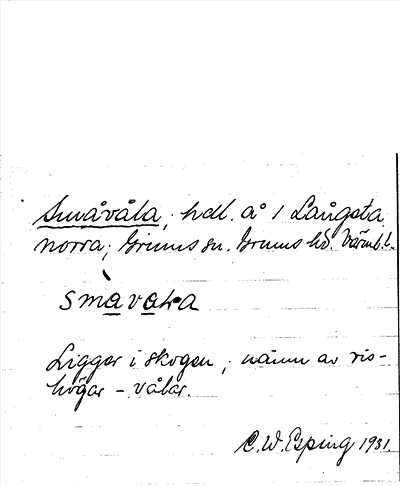 Småvåla, hdl. å 1 Långsta
norra; Grums sn. Grums hd. Värml. l.
smàvaɫa
Ligger i skogen; nämn av ris-
högar – vålar.
C. W. Esping 1931.